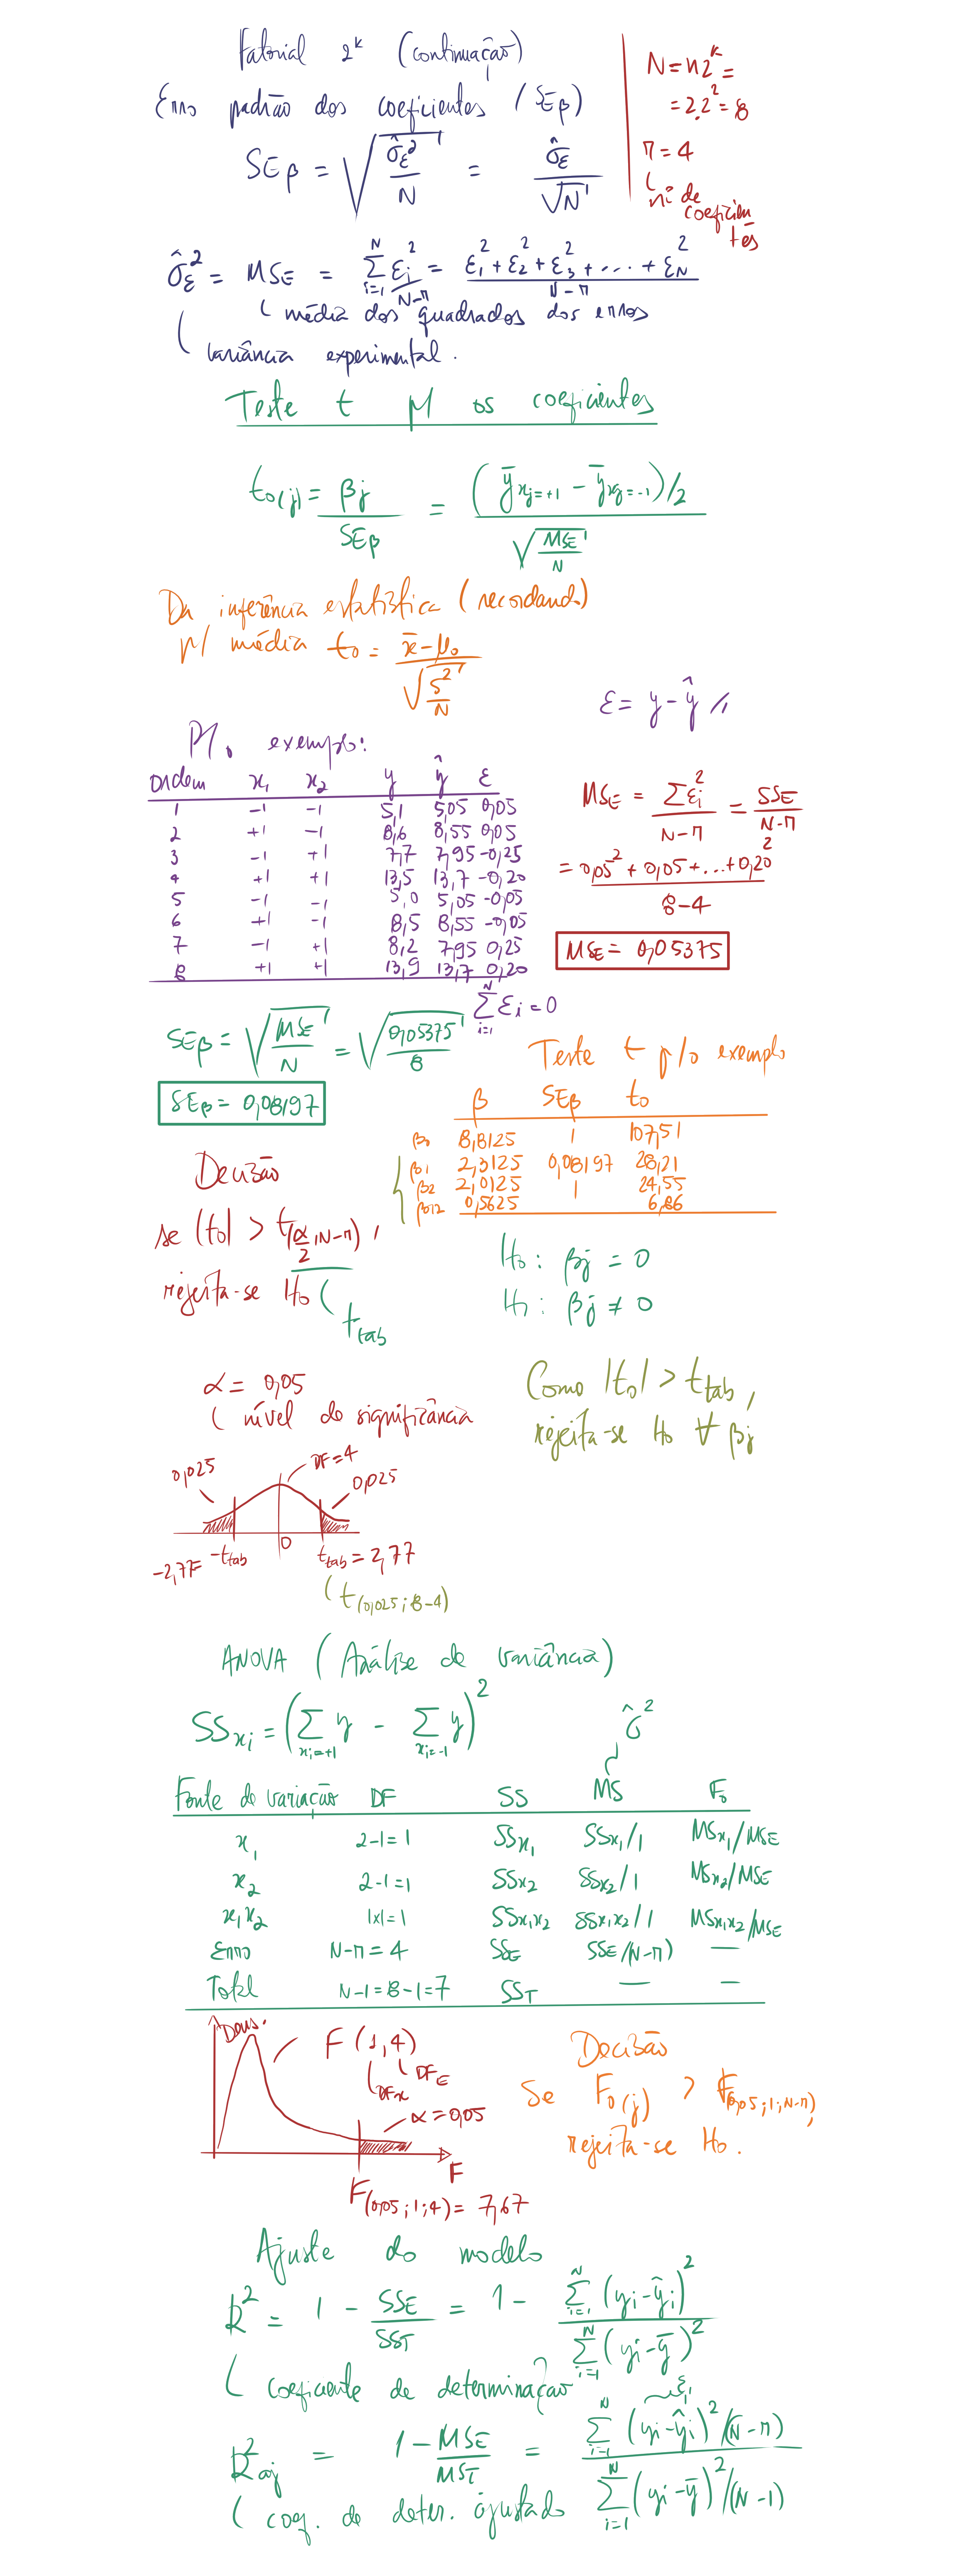 Fatorial 2^k (continuação)
Erro padrão dos coeficientes (SEβ)
SEβ = √(σ̂ε²/N) = σ̂ε/√N
N = n2^k =
= 2.2² = 8
r = 4
nº de coeficientes
σ̂ε² = MSE = Σ(i=1..N) εi²/(N-r) = (ε1² + ε2² + ε3² + .... + εN²)/(N-r)
média dos quadrados dos erros
variância experimental.
Teste t p/ os coeficientes
t0(j) = βj/SEβ = (ȳxj=+1 - ȳxj=-1)/2 / √(MSE/N)
Da inferência estatística (recordando)
p/ média t0 = (x̄ - μ0)/√(S²/N)
ε = y - ŷ //
P/. exemplo:
Ordem x1 x2 y ŷ ε
1 -1 -1 5,1 5,05 0,05
2 +1 -1 8,6 8,55 0,05
3 -1 +1 7,7 7,95 -0,25
4 +1 +1 13,5 13,7 -0,20
5 -1 -1 5,0 5,05 -0,05
6 +1 -1 8,5 8,55 -0,05
7 -1 +1 8,2 7,95 0,25
8 +1 +1 13,9 13,7 0,20
Σ(i=1..N) εi = 0
MSE = Σεi²/(N-r) = SSE/(N-r)
= (0,05² + 0,05² + ... + 0,20²)/(8-4)
MSE = 0,05375
SEβ = √(MSE/N) = √(0,05375/8)
SEβ = 0,08197
Teste t p/o exemplo
β SEβ t0
β0 8,8125 | 107,51
β1 2,3125 0,08197 28,21
β2 2,0125 | 24,55
β12 0,5625 6,86
Decisão
se |t0| > t(α/2, N-r),
rejeita-se H0
ttab
H0: βj = 0
H1: βj ≠ 0
α = 0,05
nível de significância
Como |t0| > ttab,
rejeita-se H0 ∀ βj
0,025 DF=4 0,025
-2,77= -ttab 0 ttab = 2,77
t(0,025; 8-4)
ANOVA (Análise de variância)
SSxi = (Σ(xi=+1) y - Σ(xi=-1) y)²
σ̂²
Fonte de variação DF SS MS F0
x1 2-1=1 SSx1 SSx1/1 MSx1/MSE
x2 2-1=1 SSx2 SSx2/1 MSx2/MSE
x1x2 1x1=1 SSx1x2 SSx1x2/1 MSx1x2/MSE
Erro N-r=4 SSE SSE/(N-r) —
Total N-1=8-1=7 SST — —
Dens.
F(1,4)
DFx DFE
α=0,05
F
F(0,05; 1; 4) = 7,67
Decisão
Se F0(j) > F0,05; 1; N-r),
rejeita-se H0.
Ajuste do modelo
R² = 1 - SSE/SST = 1 - Σ(i=1..N) (yi-ŷi)² / Σ(i=1..N) (yi-ȳ)²
coeficiente de determinação
εi
R²aj = 1 - MSE/MST = Σ(i=1..N) (yi-ŷi)²/(N-r) / Σ(i=1..N) (yi-ȳ)²/(N-1)
coef. de deter. ajustado